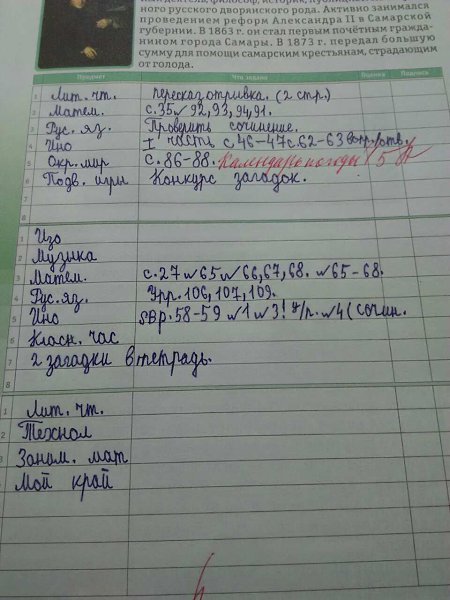 ного русского дворянского рода. Активно занимался
проведением реформ Александра II в Самарской
губернии. В 1863 г. он стал первым почётным гражда-
нином города Самары. В 1873 г. передал большую
сумму для помощи самарским крестьянам, страдающим
от голода.
Предмет Что задано Оценка Подпись
1 Лит. чт. пересказ отрывка. (2 стр.)
2 Матем. с.35 № 92,93,94,91.
3 Рус. яз. Проверить сочинение.
4 Ино I часть с 46-47 с.62-63 вопр/отв.
5 Окр. мир с. 86-88. Календарь погоды 5
6 Подв. игры Конкурс загадок.
7
8
1 Изо
2 Музыка
3 Матем. с.27 №65 № 66,67,68. №65-68.
4 Рус. яз. Упр. 106, 107, 109.
5 Ино стр. 58-59 №1 №3! У/р. №4 (сочин.
6 Классн. час
7 2 загадки в тетрадь.
8
1 Лит. чт.
2 Технол
3 Заним. мат
Мой край